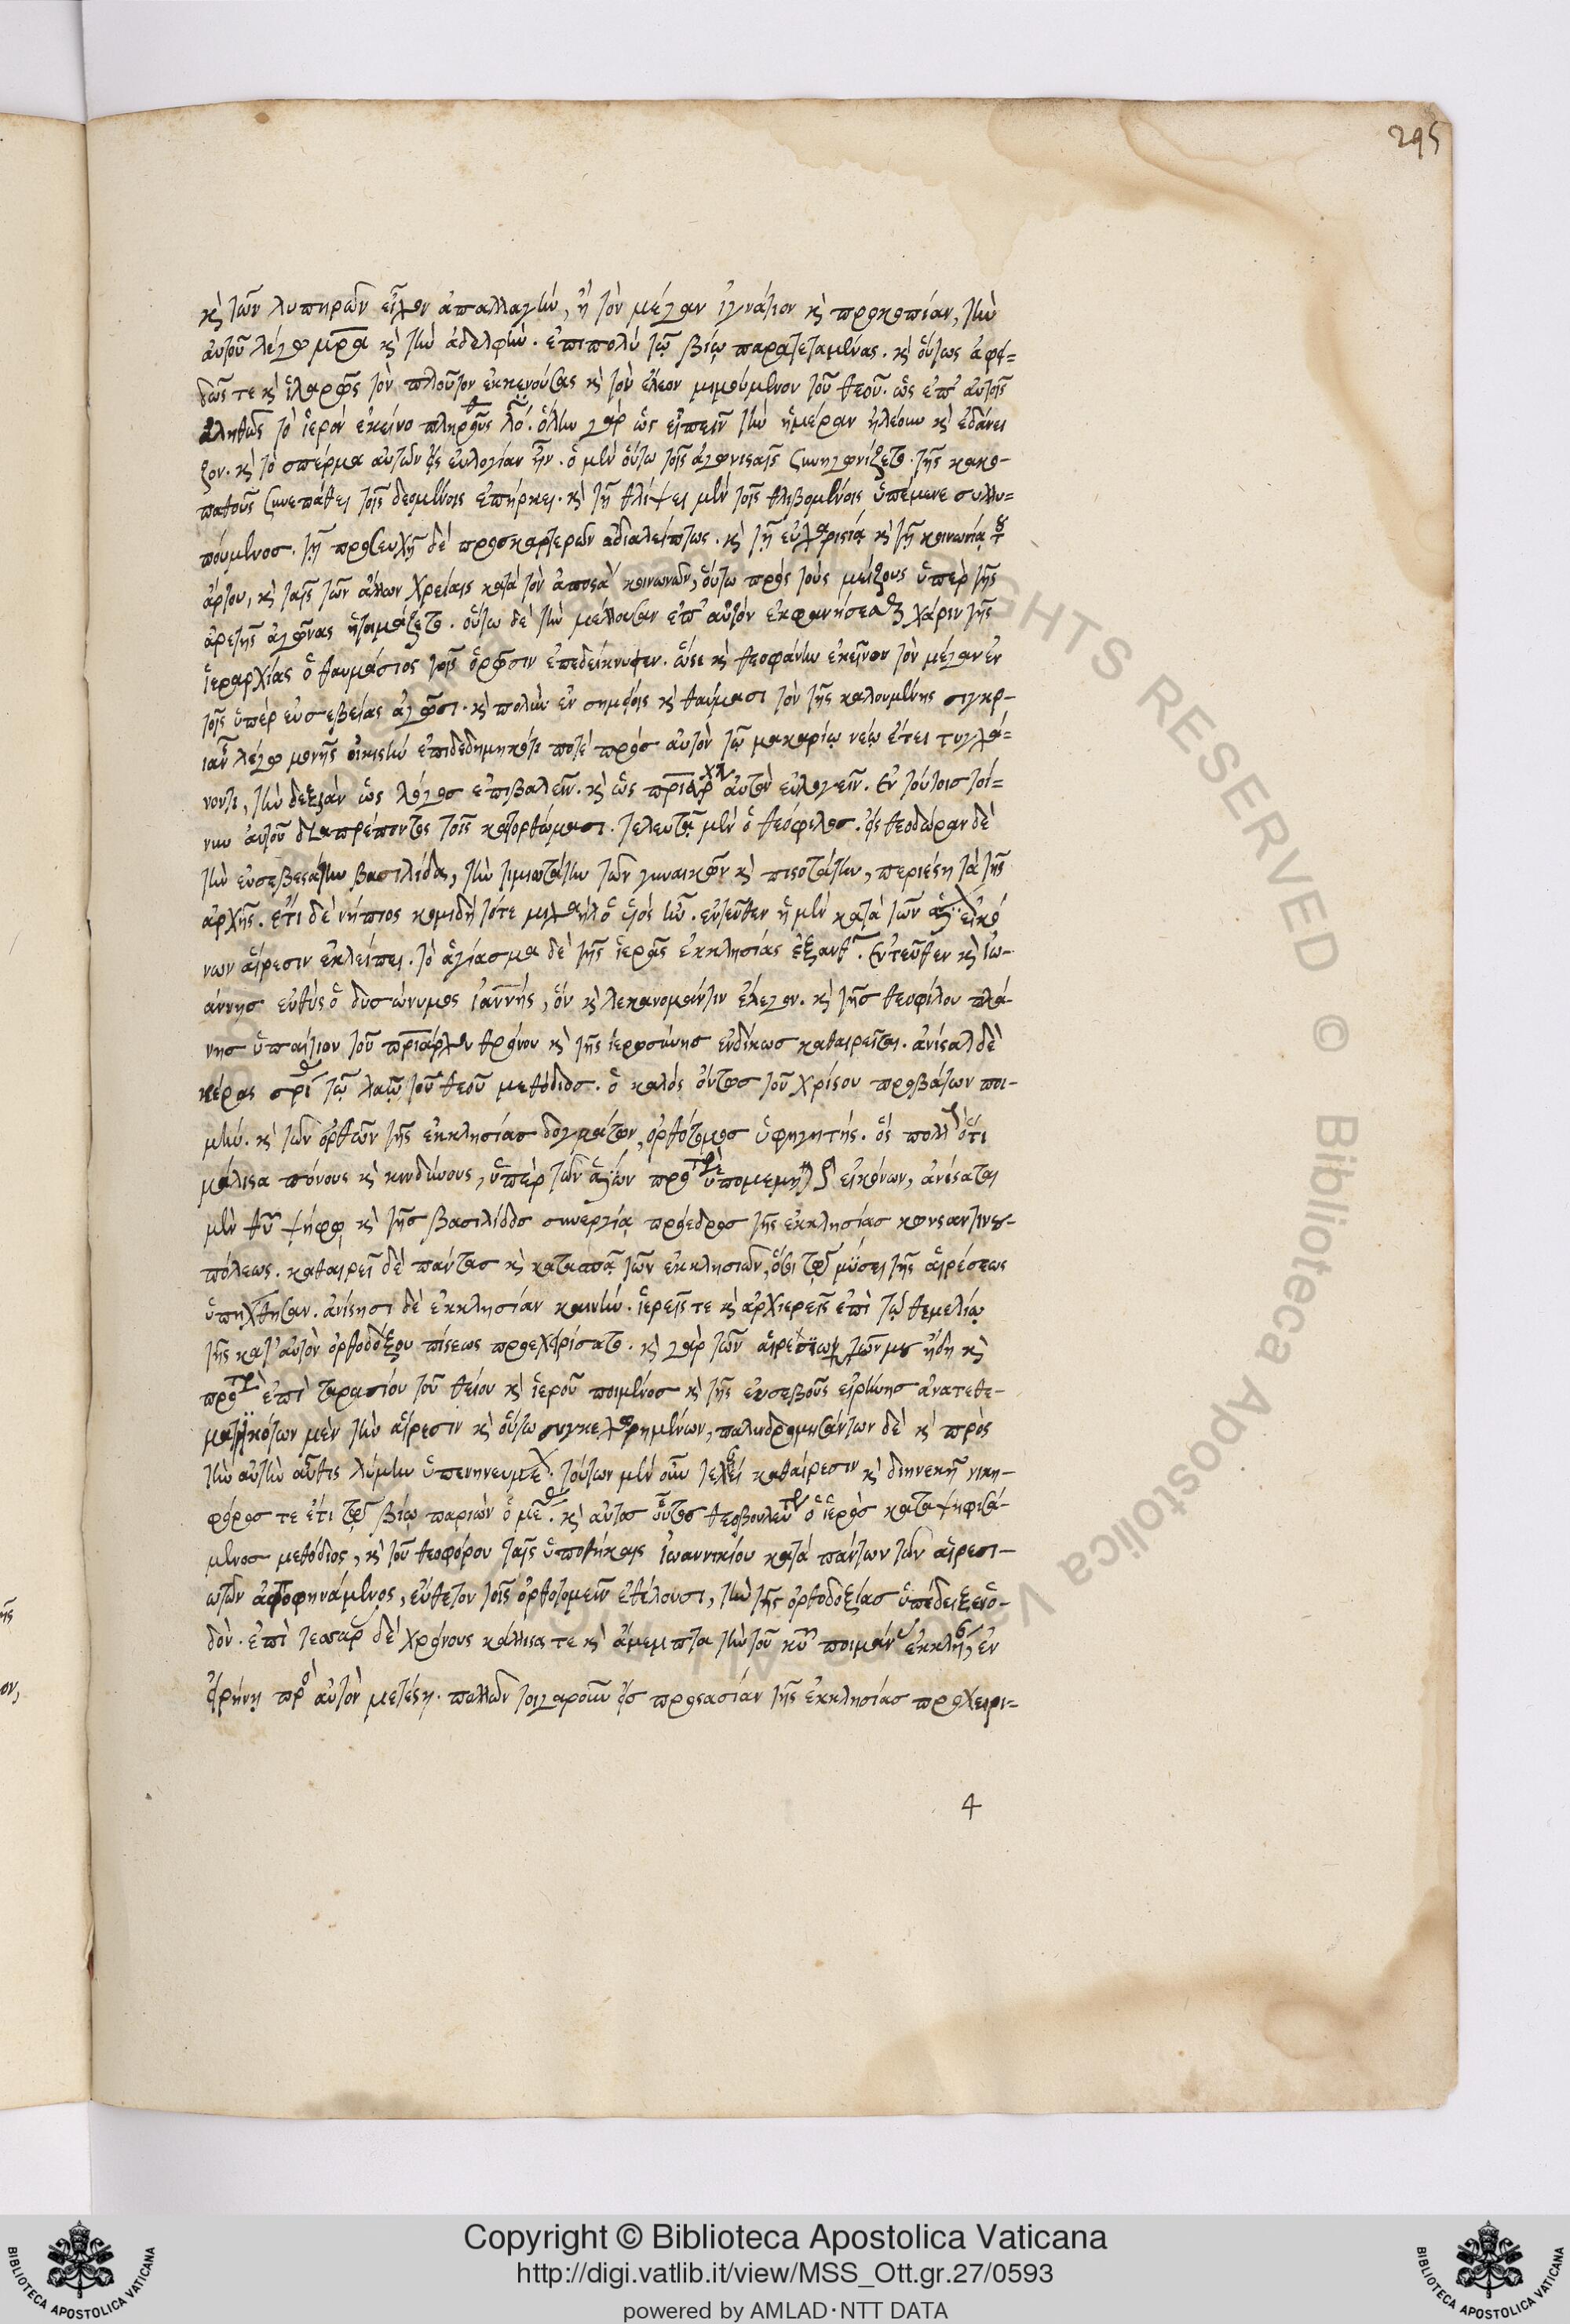 295
κ τῶν λυπηρῶν εἶχον ἀπαλλαγὴν, ἢ τὸν μέγαν ἰγνάτιον κ προκοπίαν, τὴν
αὐτοῦ λέγω μρα κ τὴν ἀδελφὴν. ἐπιπολὺ τῷ βίῳ παρατεταμένας. κ οὕτως ἀφει=
δῶς τε κ ἱλαρῶς τὸν πλοῦτον ἐκκενούσας κ τὸν ἔλεον μιμούμενον τοῦ θεοῦ. ὡς ἐπ' αὐτοῖς
ἀληθῶς τὸ ἱερὸν ἐκεῖνο πληροῦσθαι λό. ὅλην γὰρ ὡς εἰπεῖν τὴν ἡμέραν ἠλέουν κ ἐδάνει
ζον. κ τὸ σπέρμα αὐτῶν εἰς εὐλογίαν ἦν. ὁ μὲν οὕτω τοῖς ἀγωνισταῖς συνηγωνίζετο. τοῖς κακο-
παθοῦσι συνεπάθει τοῖς δεομένοις ἐπήρκει. κ τῇ θλίψει μὲν τοῖς θλιβομένοις ὑπέμενε συλλυ=
πούμενος. τῇ προσευχῇ δὲ προσκαρτερῶν ἀδιαλείπτως. κ τῇ εὐχαριστίᾳ κ τῇ κοινωνίᾳ τοῦ
ἄρτου, κ ταῖς τῶν ἄλλων χρείαις κατὰ τὸν ἀποστλ κοινωνῶν, οὕτω πρὸς τοὺς μείζους ὑπὲρ τῆς
ἀρετῆς ἀγῶνας ἡτοιμάζετο. οὕτω δὲ τὴν μέλλουσαν ἐπ' αὐτὸν ἐκφανήσεσθαι χάριν τῆς
ἱεραρχίας ὁ θαυμάσιος τοῖς ὁρῶσιν ἐπεδείκνυεν. ὥστε κ θεοφάνην ἐκεῖνον τὸν μέγαν ἐν
τοῖς ὑπὲρ εὐσεβείας ἀγῶσι. κ πολὺν ἐν σημείοις κ θαύμασι τὸν τῆς καλουμένης σιγκρ-
ιαν λέγω μονῆς οἰκιστὴν ἐπιδεδημηκότα ποτὲ πρὸς αὐτὸν τῷ μακαρίῳ νέῳ ἔτει τυγχά=
νοντι, τὴν δεξιὰν ὡς λόγος ἐπιβαλεῖν. κ ὡς πριάρχην αὐτὸν εὐλογεῖν. Ἐν τούτοις τοί=
νυν αὐτοῦ διαπρέποντος τοῖς κατορθώμασι. τελευτᾷ μὲν ὁ θεόφιλος. εἰς θεοδώραν δὲ
τὴν εὐσεβεστάτην βασιλίδα, τὴν τιμιωτάτην τῶν γυναικῶν κ πιστοτάτην, περιέστη τὰ τῆς
ἀρχῆς. ἔτι δὲ νήπιος κομιδῇ τότε μιχαὴλ ὁ υἱὸς ἦν. ἐντεῦθεν ἡ μὲν κατὰ τῶν ἁγίων εἰκό
νων αἵρεσιν ἐκλείπει. τὸ ἁγίασμα δὲ τῆς ἱερᾶς ἐκκλησίας ἐξανθεῖ. Ἐντεῦθεν κ ἰω-
άννης εὐθὺς ὁ δυσώνυμος ἰαννής, ὃν κ λεκανομάντιν ἔλεγον. κ τῆς θεοφίλου πλά-
νης ὑπαίτιον τοῦ πριάρχου θρόνου κ τῆς ἱερωσύνης ἐνδίκως καθαιρεῖται. ἀνίσταται δὲ
κέρας σρι τῷ λαῷ τοῦ θεοῦ μεθόδιος. ὁ καλὸς ὄντως τοῦ χριστοῦ προβάτων ποι-
μὴν. κ τῶν ὀρθῶν τῆς ἐκκλησίας δογμάτων ὀρθότομος ὑφηγητής. ὃς πολλ ὅτι
μάλιστα πόνους κ κινδύνους, ὑπὲρ τῶν ἁγίων πρότερον ὑπομεμενηκὼς εἰκόνων, ἀνίσταται
μὲν θῦ ψήφῳ κ τῆς βασιλίδος συνεργίᾳ πρόεδρος τῆς ἐκκλησίας κωνσταντινου-
πόλεως. καθαιρεῖ δὲ πάντας κ κατασπᾷ τῶν ἐκκλησιῶν, ὅσοι τῷ μύσει τῆς αἱρέσεως
ὑπήχθησαν. ἀνίστησι δὲ ἐκκλησίαν καινὴν. ἱερεῖς τε κ ἀρχιερεῖς ἐπὶ τῷ θεμελίῳ
τῆς κατ' αὐτὸν ὀρθοδόξου πίστεως προεχειρίσατο. κ γὰρ τῶν αἱρετικῶν τῶν μου ἤδη κ
πρότερον ἐπὶ ταρασίου τοῦ θείου κ ἱεροῦ ποιμένος κ τῆς εὐσεβοῦς εἰρήνης ἀνατεθε-
ματικότων μὲν τὴν αἵρεσιν κ οὕτω συγκεχωρημένων, παλινδρομησάντων δὲ κ πρὸς
τὴν αὐτὴν αὖθις λύμην ὑπενηνεγμε. τούτων μὲν οὖν τελείαν καθαίρεσιν κ διηνεκῆ νικη-
φόρος τε ἔτι τῷ βίῳ παριὼν ὁ μέγας. κ αὐτὸς οὗτος θεοβούλευτος ὁ ἱερὸς καταψηφισά-
μενος μεθόδιος, κ τοῦ θεοφόρου ταῖς ὑποθήκαις ἰωαννικίου κατὰ πάντων τῶν αἱρεσι-
ωτῶν ἀποφηνάμενος, εὔθετον τοῖς ὀρθοτομεῖν ἐθέλουσι, τὴν τῆς ὀρθοδοξίας ὑπέδειξεν ὁ-
δόν. ἐπὶ τέσσαρ δὲ χρόνους κάλλιστα τε κ ἄμεμπτα τὴν τοῦ κῦ ποιμάνας ἐκκλησίαν, ἐν
εἰρήνῃ πρὸς αὐτὸν μετέστη. πολλῶν τοιγαροῦν εἰς προστασίαν τῆς ἐκκλησίας προχειρι=
4
RIGHTS RESERVED © Biblioteca Apostolica Vaticana
BIBLIOTECA APOSTOLICA VATICANA
Copyright © Biblioteca Apostolica Vaticana
http://digi.vatlib.it/view/MSS_Ott.gr.27/0593
powered by AMLAD·NTT DATA
BIBLIOTECA APOSTOLICA VATICANA